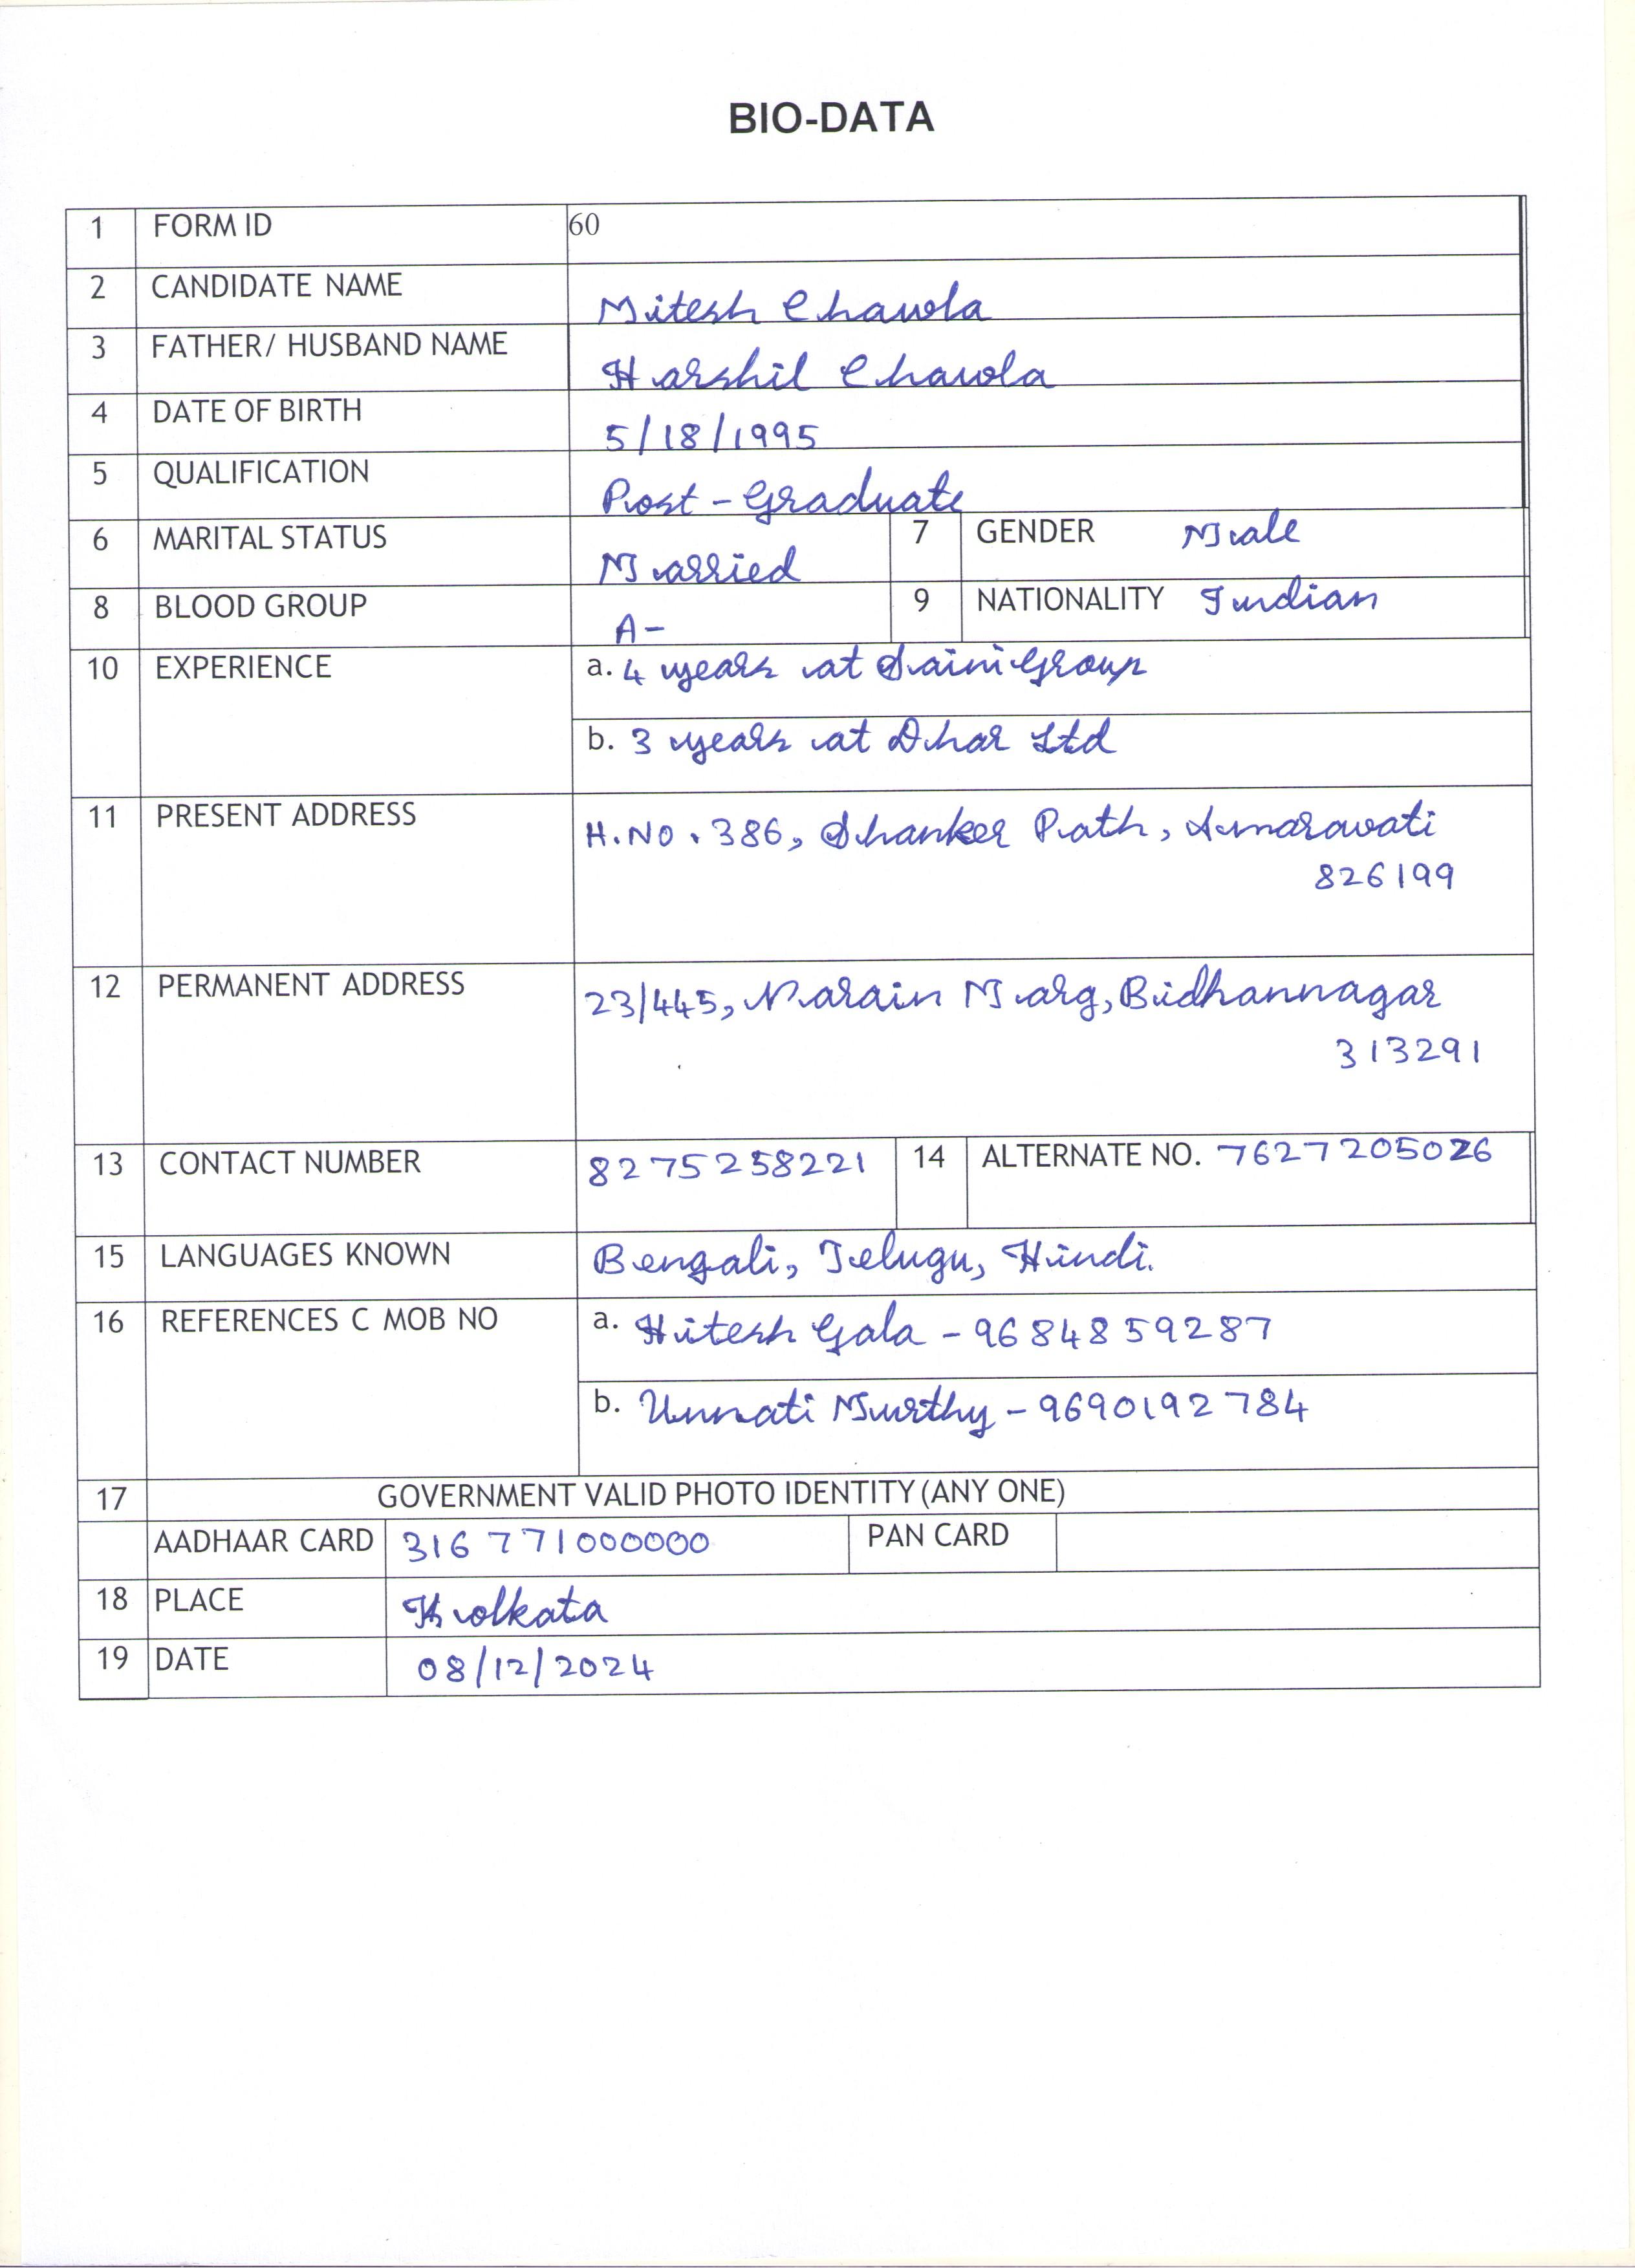 BIO-DATA
1 FORM ID 60
2 CANDIDATE NAME Mitesh Chawla
3 FATHER/ HUSBAND NAME Harshil Chawla
4 DATE OF BIRTH 5/18/1995
5 QUALIFICATION Post-Graduate
6 MARITAL STATUS Married 7 GENDER Male
8 BLOOD GROUP A- 9 NATIONALITY Indian
10 EXPERIENCE a. 4 years at Saini Group
b. 3 years at Dhar Ltd
11 PRESENT ADDRESS H.NO. 386, Shanker Path, Amaravati
826199
12 PERMANENT ADDRESS 23/445, Narain Marg, Bidhannagar
313291
13 CONTACT NUMBER 8275258221 14 ALTERNATE NO. 7627205026
15 LANGUAGES KNOWN Bengali, Telugu, Hindi.
16 REFERENCES C MOB NO a. Hitesh Gala - 9684859287
b. Unnati Murthy - 9690192784
17 GOVERNMENT VALID PHOTO IDENTITY (ANY ONE)
AADHAAR CARD 316771000000 PAN CARD
18 PLACE Kolkata
19 DATE 08/12/2024